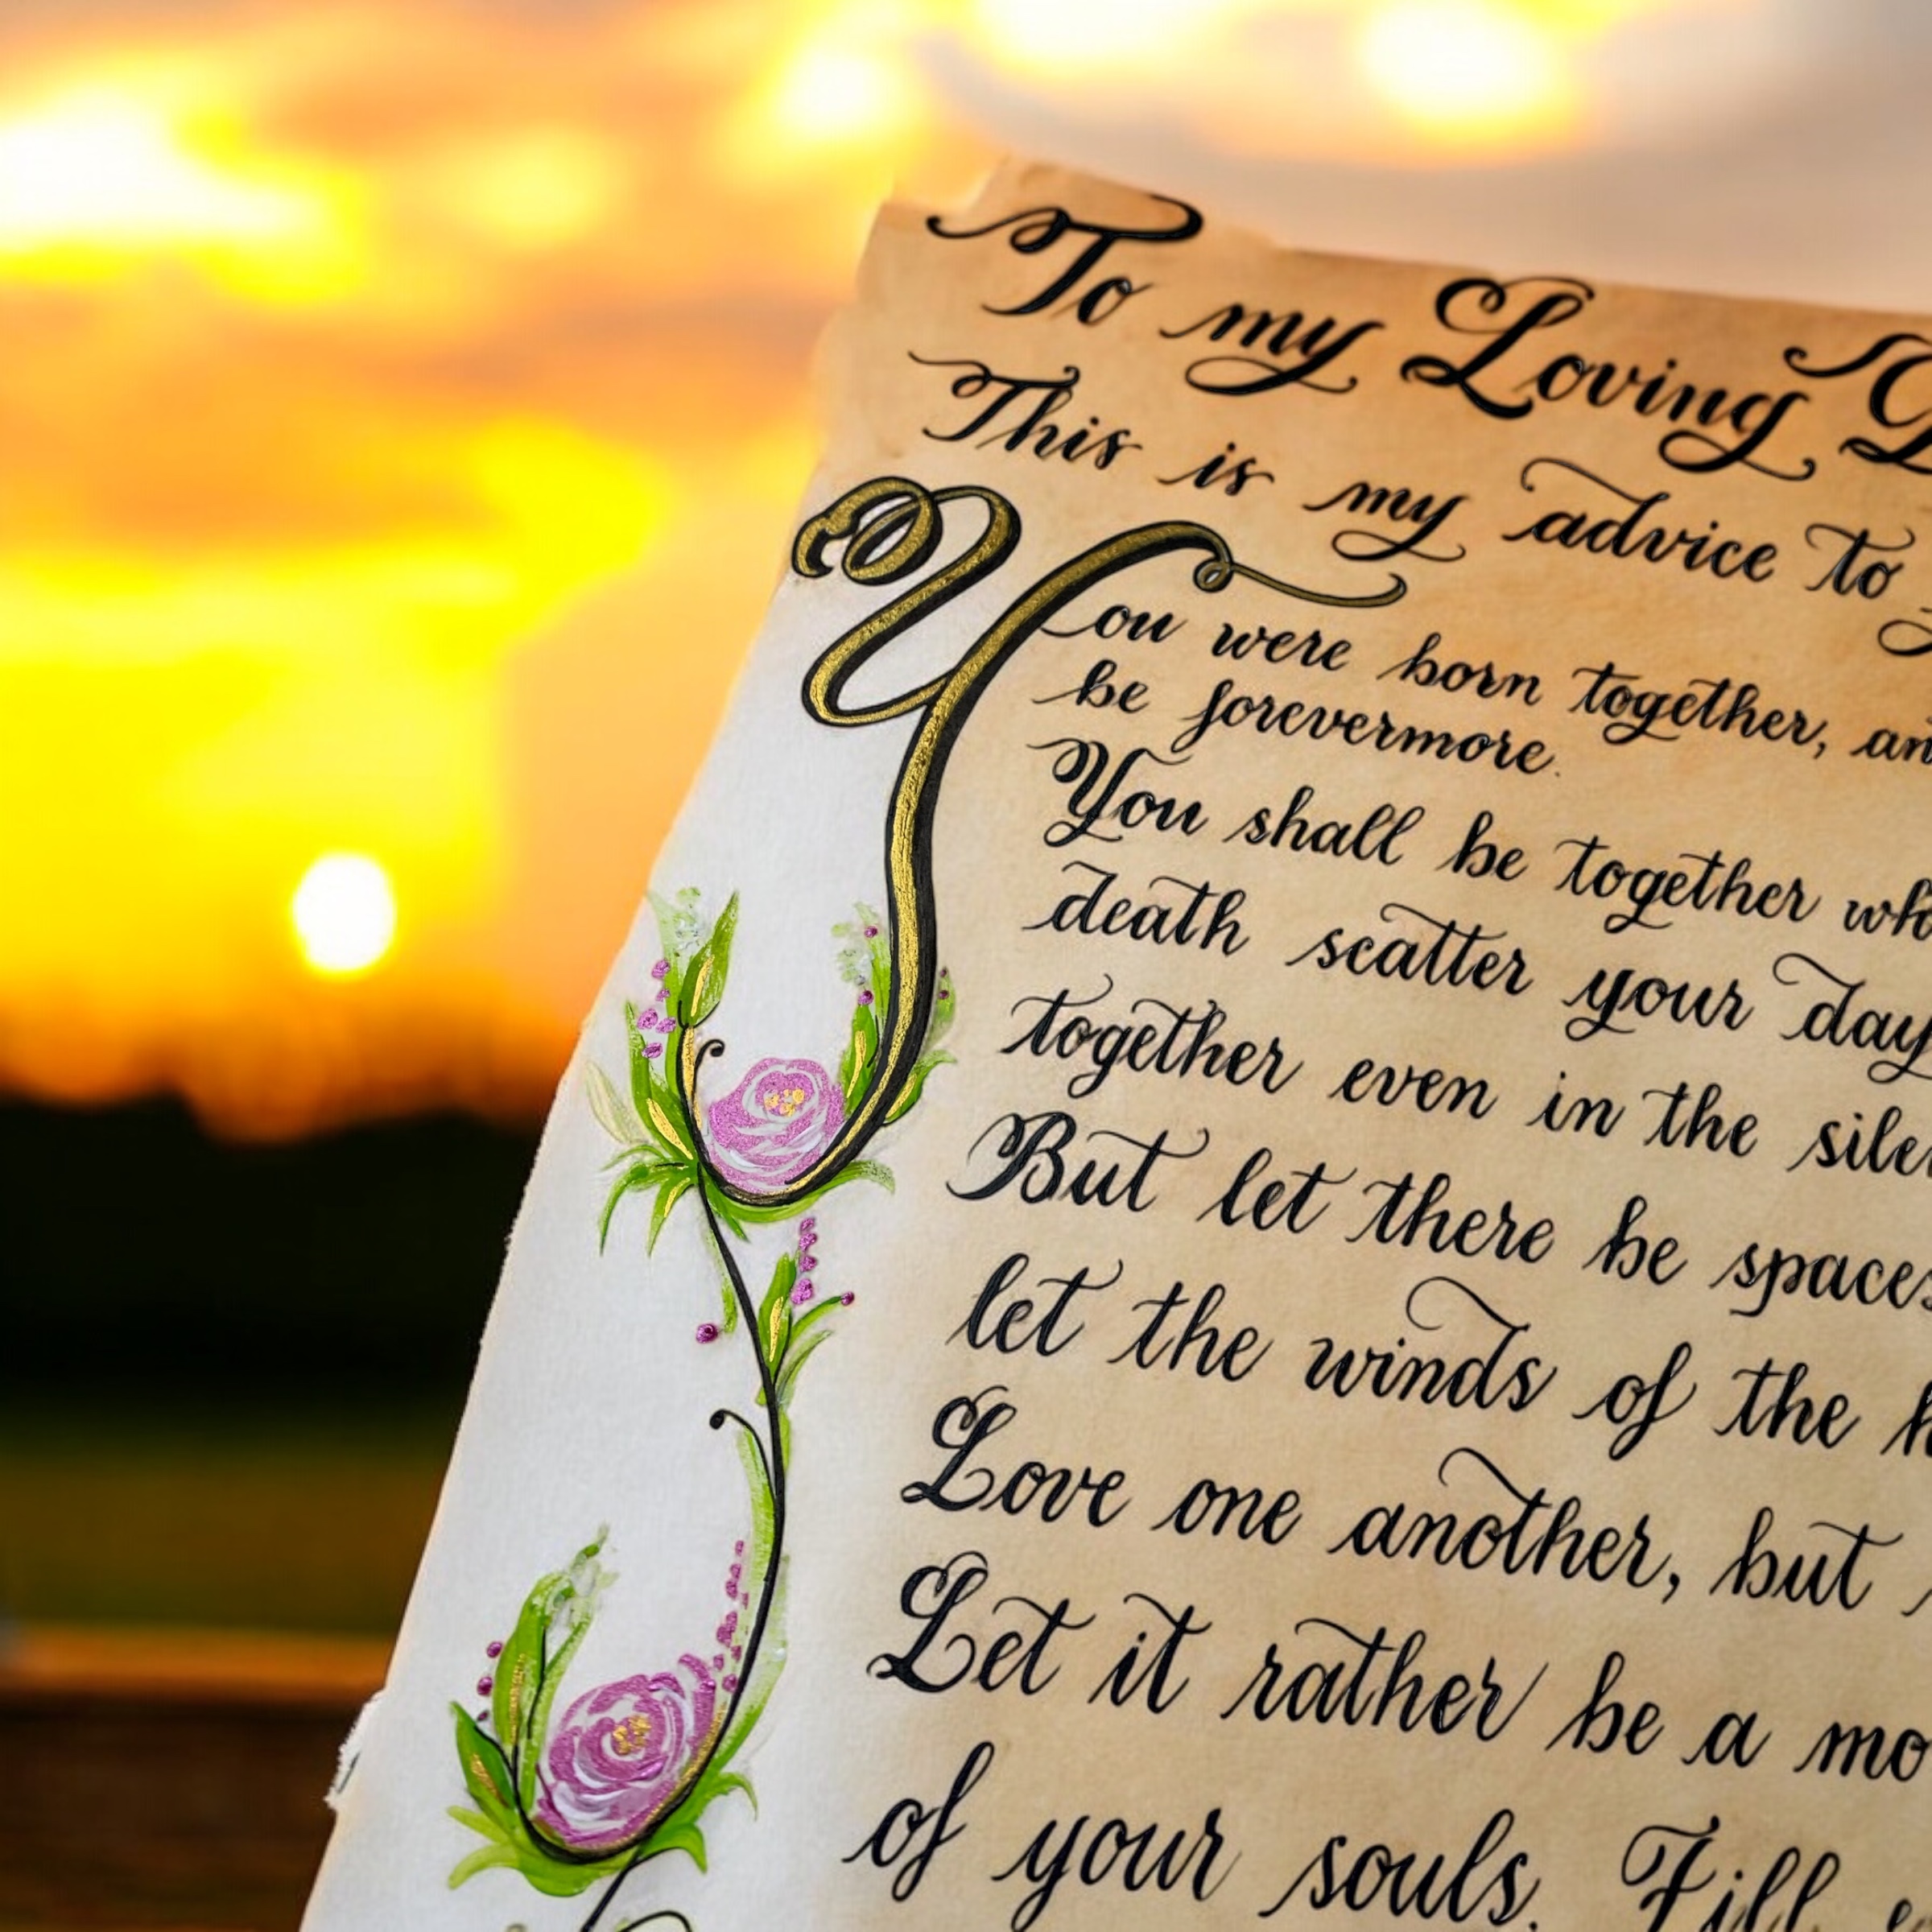 To my Loving
This is my advice to
You were born together,
be forevermore.
You shall be together
death scatter your
together even in the
But let there be
let the winds of the
Love one another, but
Let it rather be a
of your souls. Fill